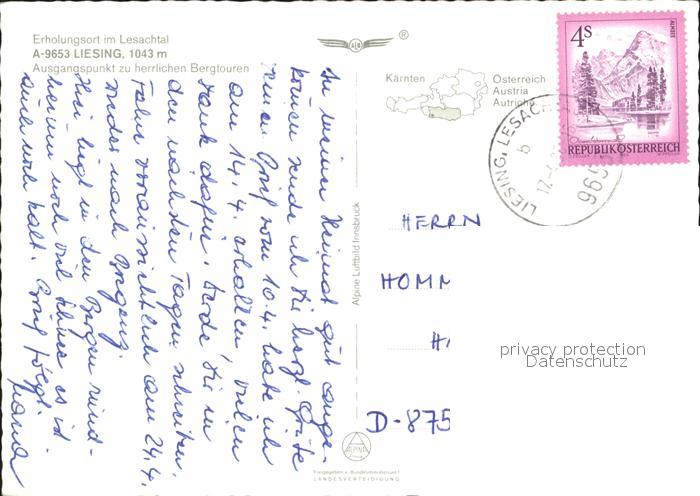 Erholungsort im Lesachtal
A-9653 LIESING, 1043 m
Ausgangspunkt zu herrlichen Bergtouren
®
Kärnten
Österreich
Austria
Autriche
4s
ALMSEE
REPUBLIK ÖSTERREICH
LIESING, LESACH
b
9653
In meiner Heimat gut ange-
kommen sende ich Dir herzl. Grüße
Deinen Brief vom 10.4. habe ich
am 14.4. erhalten, vielen
Dank dafür. Werde Dir in
den nächsten Tagen schreiben.
Fahre voraussichtlich am 24.4.
wieder nach Bregenz.
Hier liegt in den Bergen rund-
herum noch viel Schnee es ist
auch noch kalt.
Alpine Luftbild Innsbruck
HERRN
HOMM
H
D-875
privacy protection
Datenschutz
ALPINE
Freigegeben v. Bundesministerium f.
LANDESVERTEIDIGUNG